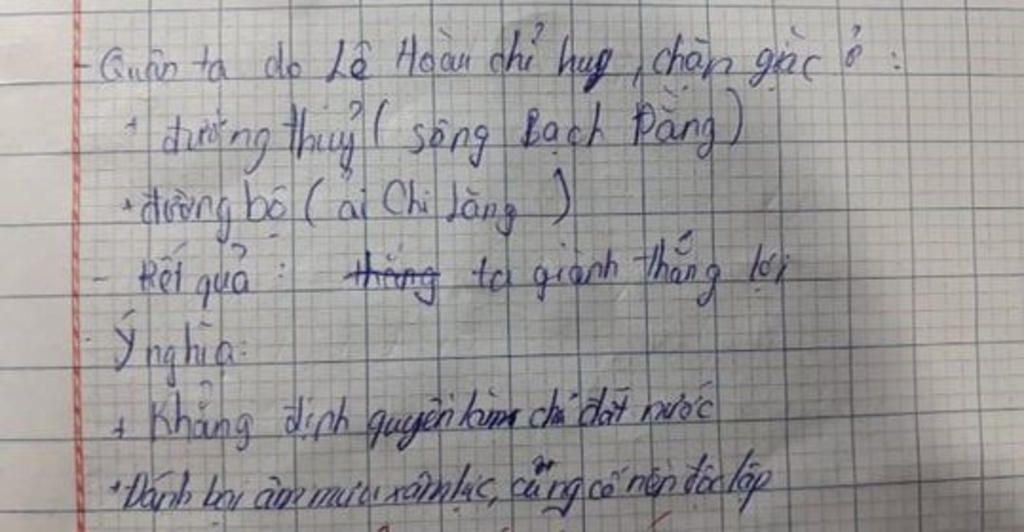 - Quân ta do Lê Hoàn chỉ huy, chặn giặc ở :
+ đường thuỷ ( sông Bạch Đằng )
+ đường bộ ( ải Chi Lăng )
- Kết quả : thắng ta giành thắng lợi
- Ý nghĩa:
+ Khẳng định quyền làm chủ đất nước
+ Đánh bại âm mưu xâm lược, củng cố nền độc lập